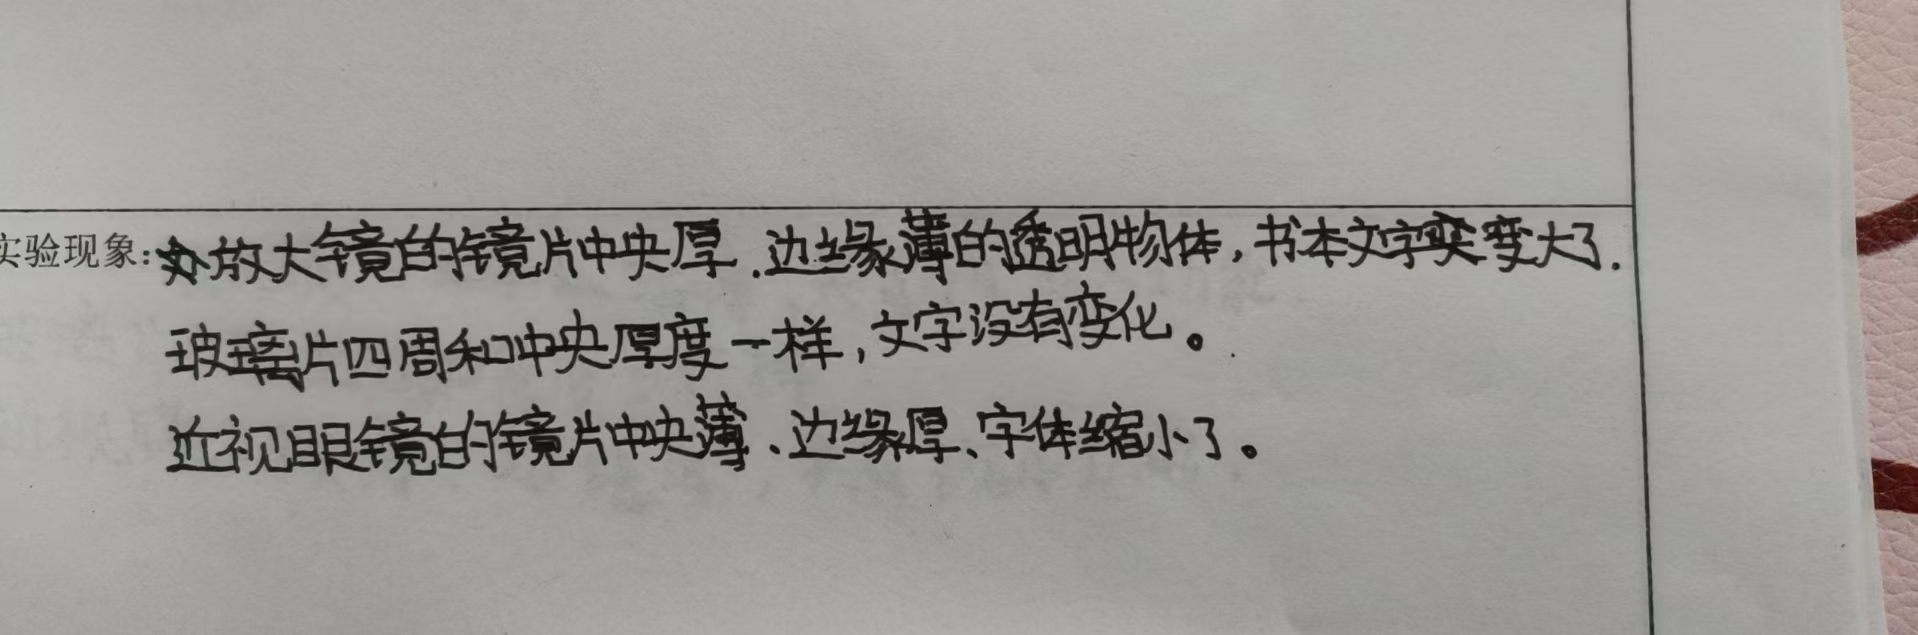 实验现象:放大镜的镜片中央厚、边缘薄的透明物体,书本文字变大了.
玻璃片四周和中央厚度一样,文字没有变化。
近视眼镜的镜片中央薄、边缘厚、字体缩小了。